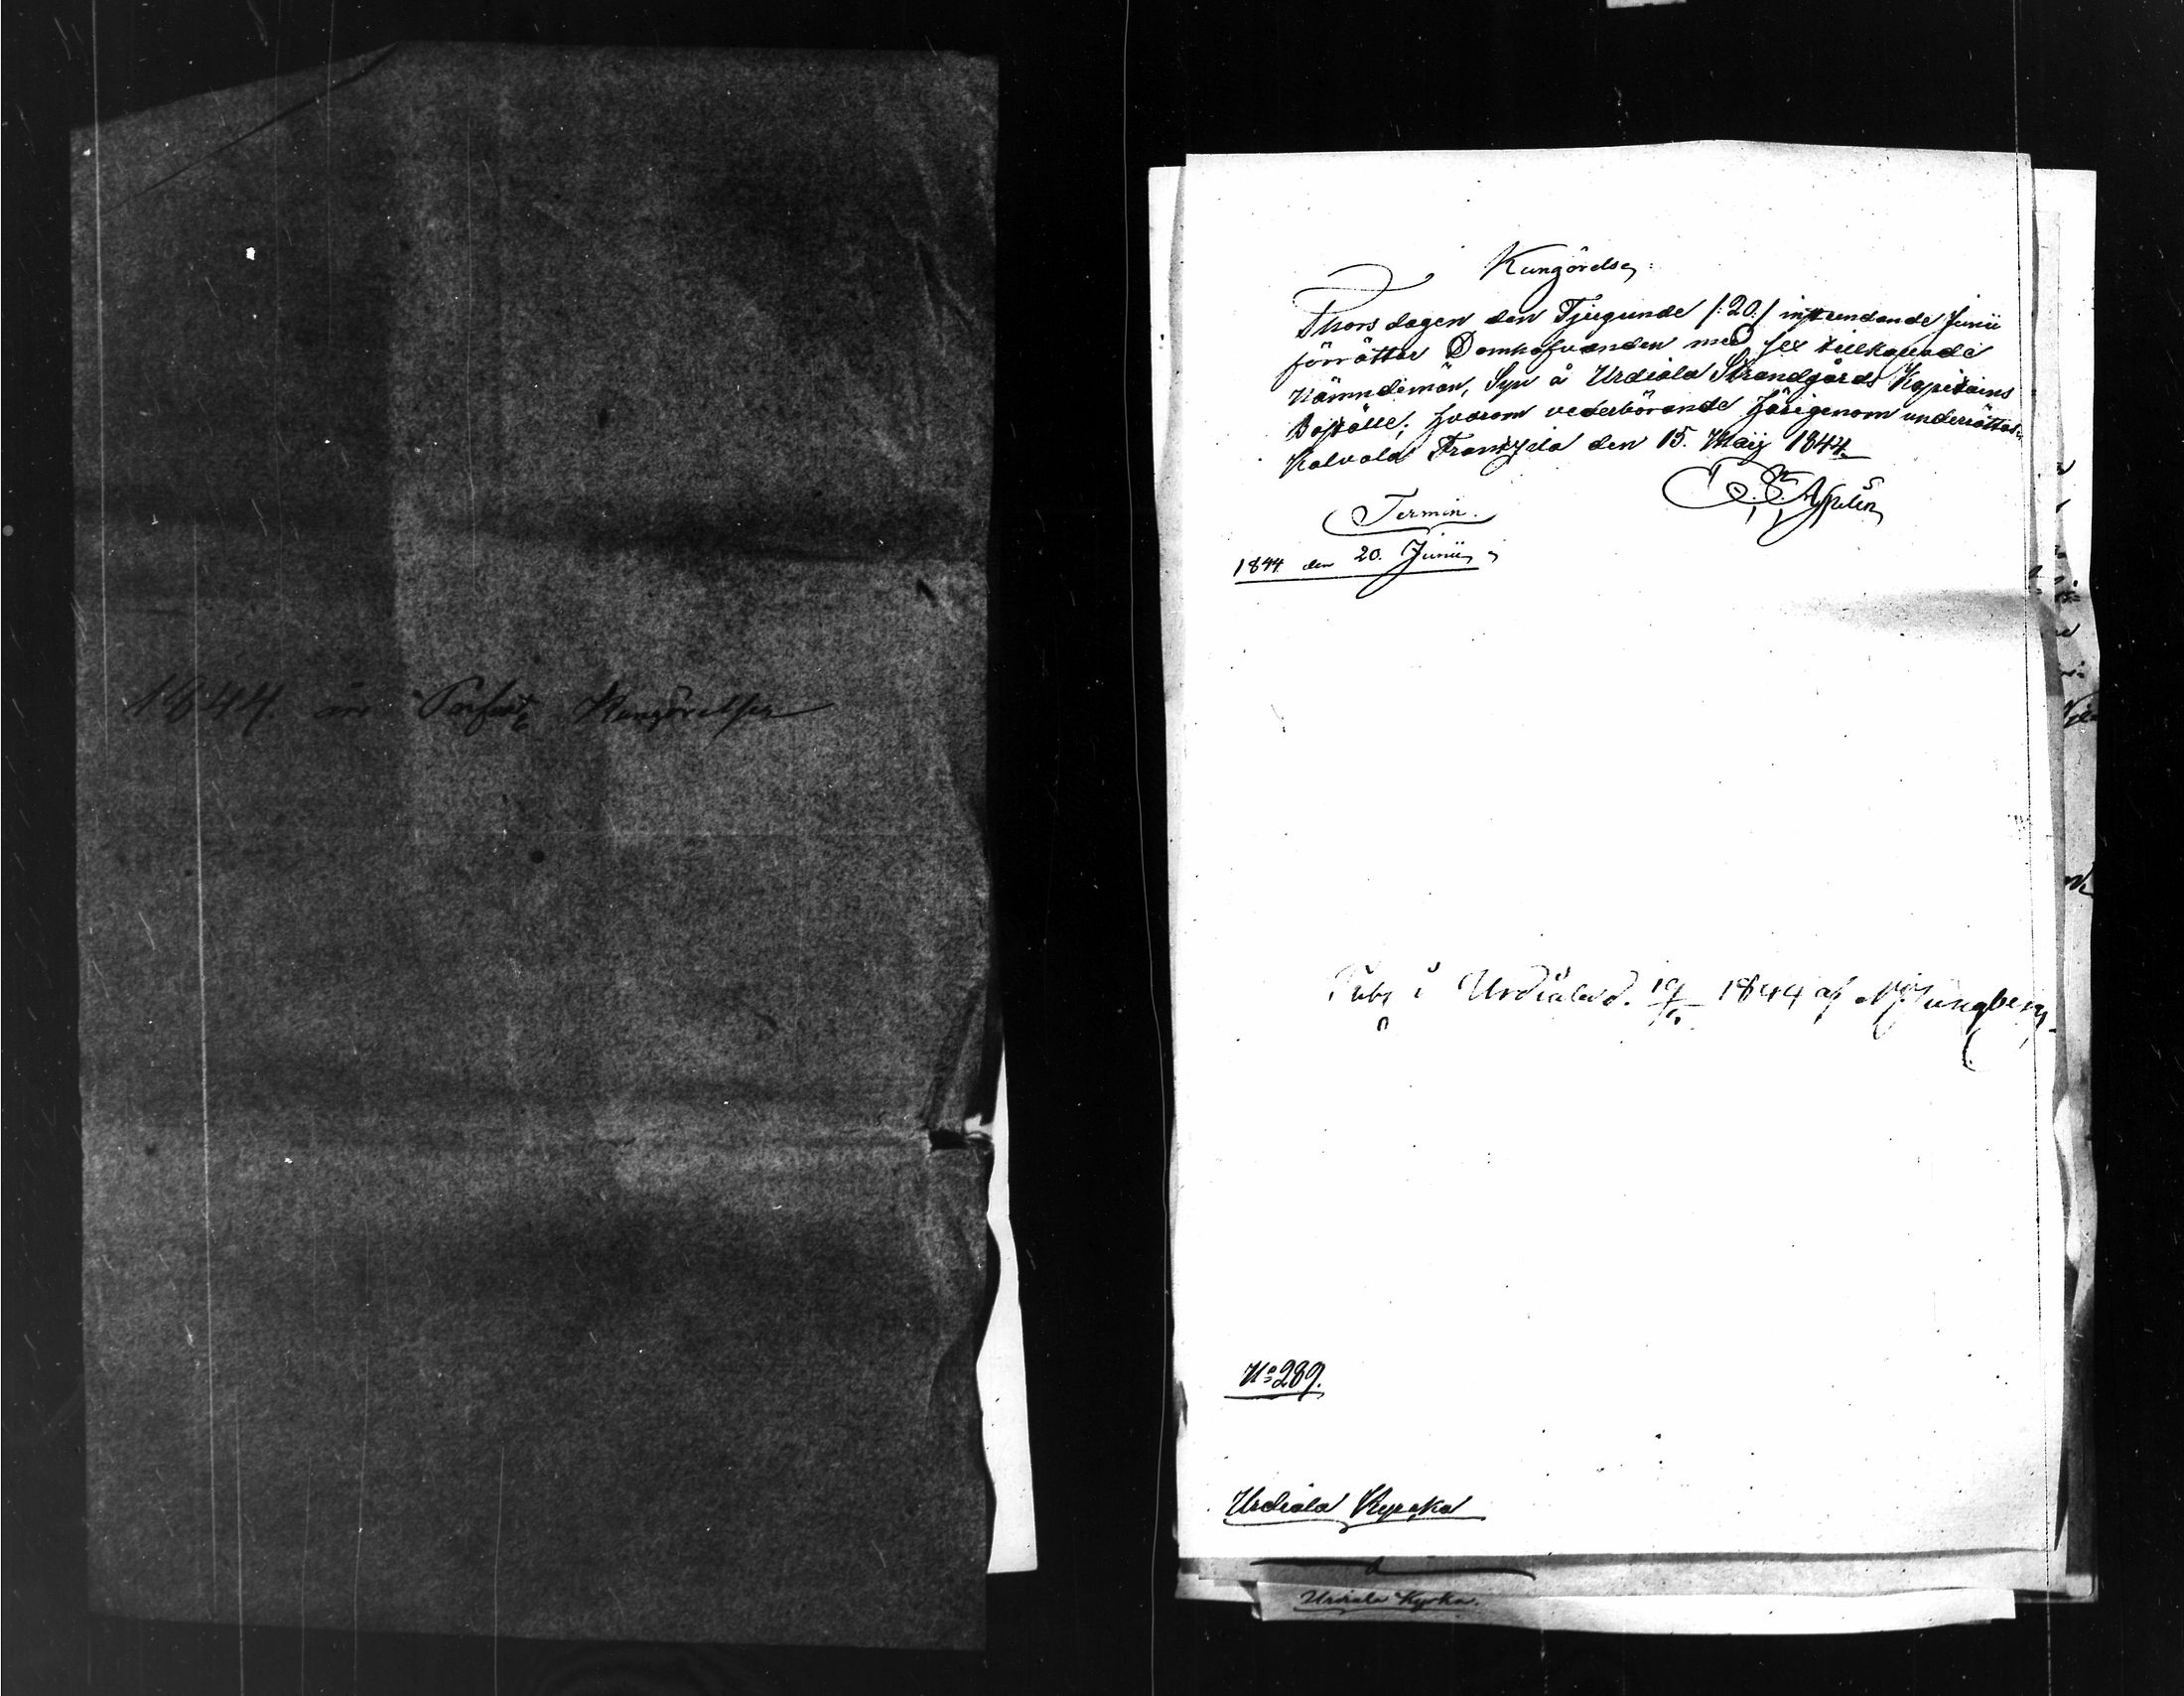 1844. års Kungörelser
Kungörelse,
Thorsdagen den Tjugunde /:20:/ instundande Junii
förrättar Domhafvanden med sex tillkallade
Nämndemän, Syn å Urdiala Strandgårds Kapitains
Boställe; hvarom vederbörande härigenom underrättas.
Kalvola Frantzila den 15. Maij 1844.
Aspelin
Termin.
1844 den 20. Junii,
Publ i Urdiala d. 1844 af Ljungberg
No 289.
Urdiala Kyrcka
Urdiala Kyrka.